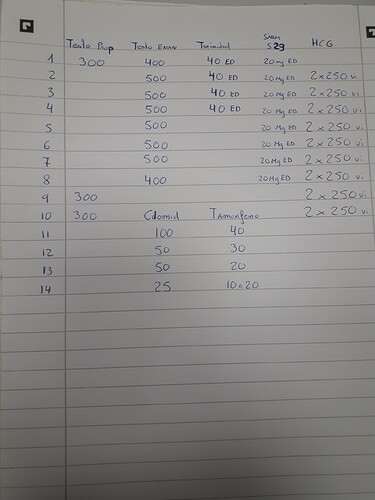 Testo Prop Testo ENAN Turinabol SARM S23 HCG
1 300 400 40 ED 20mg ED
2 500 40 ED 20Mg ED 2x250 ui
3 500 40 ED 20Mg ED 2x250 ui
4 500 40 ED 20Mg ED 2x250 ui
5 500 20 Mg ED 2x250 ui
6 500 20 Mg ED 2x250 ui
7 500 20 Mg ED 2x250 ui
8 400 20Mg ED 2x250 ui
9 300 2x250 ui
10 300 Clomid Tamoxifeno 2x250 ui
11 100 40
12 50 30
13 50 20
14 25 10o20